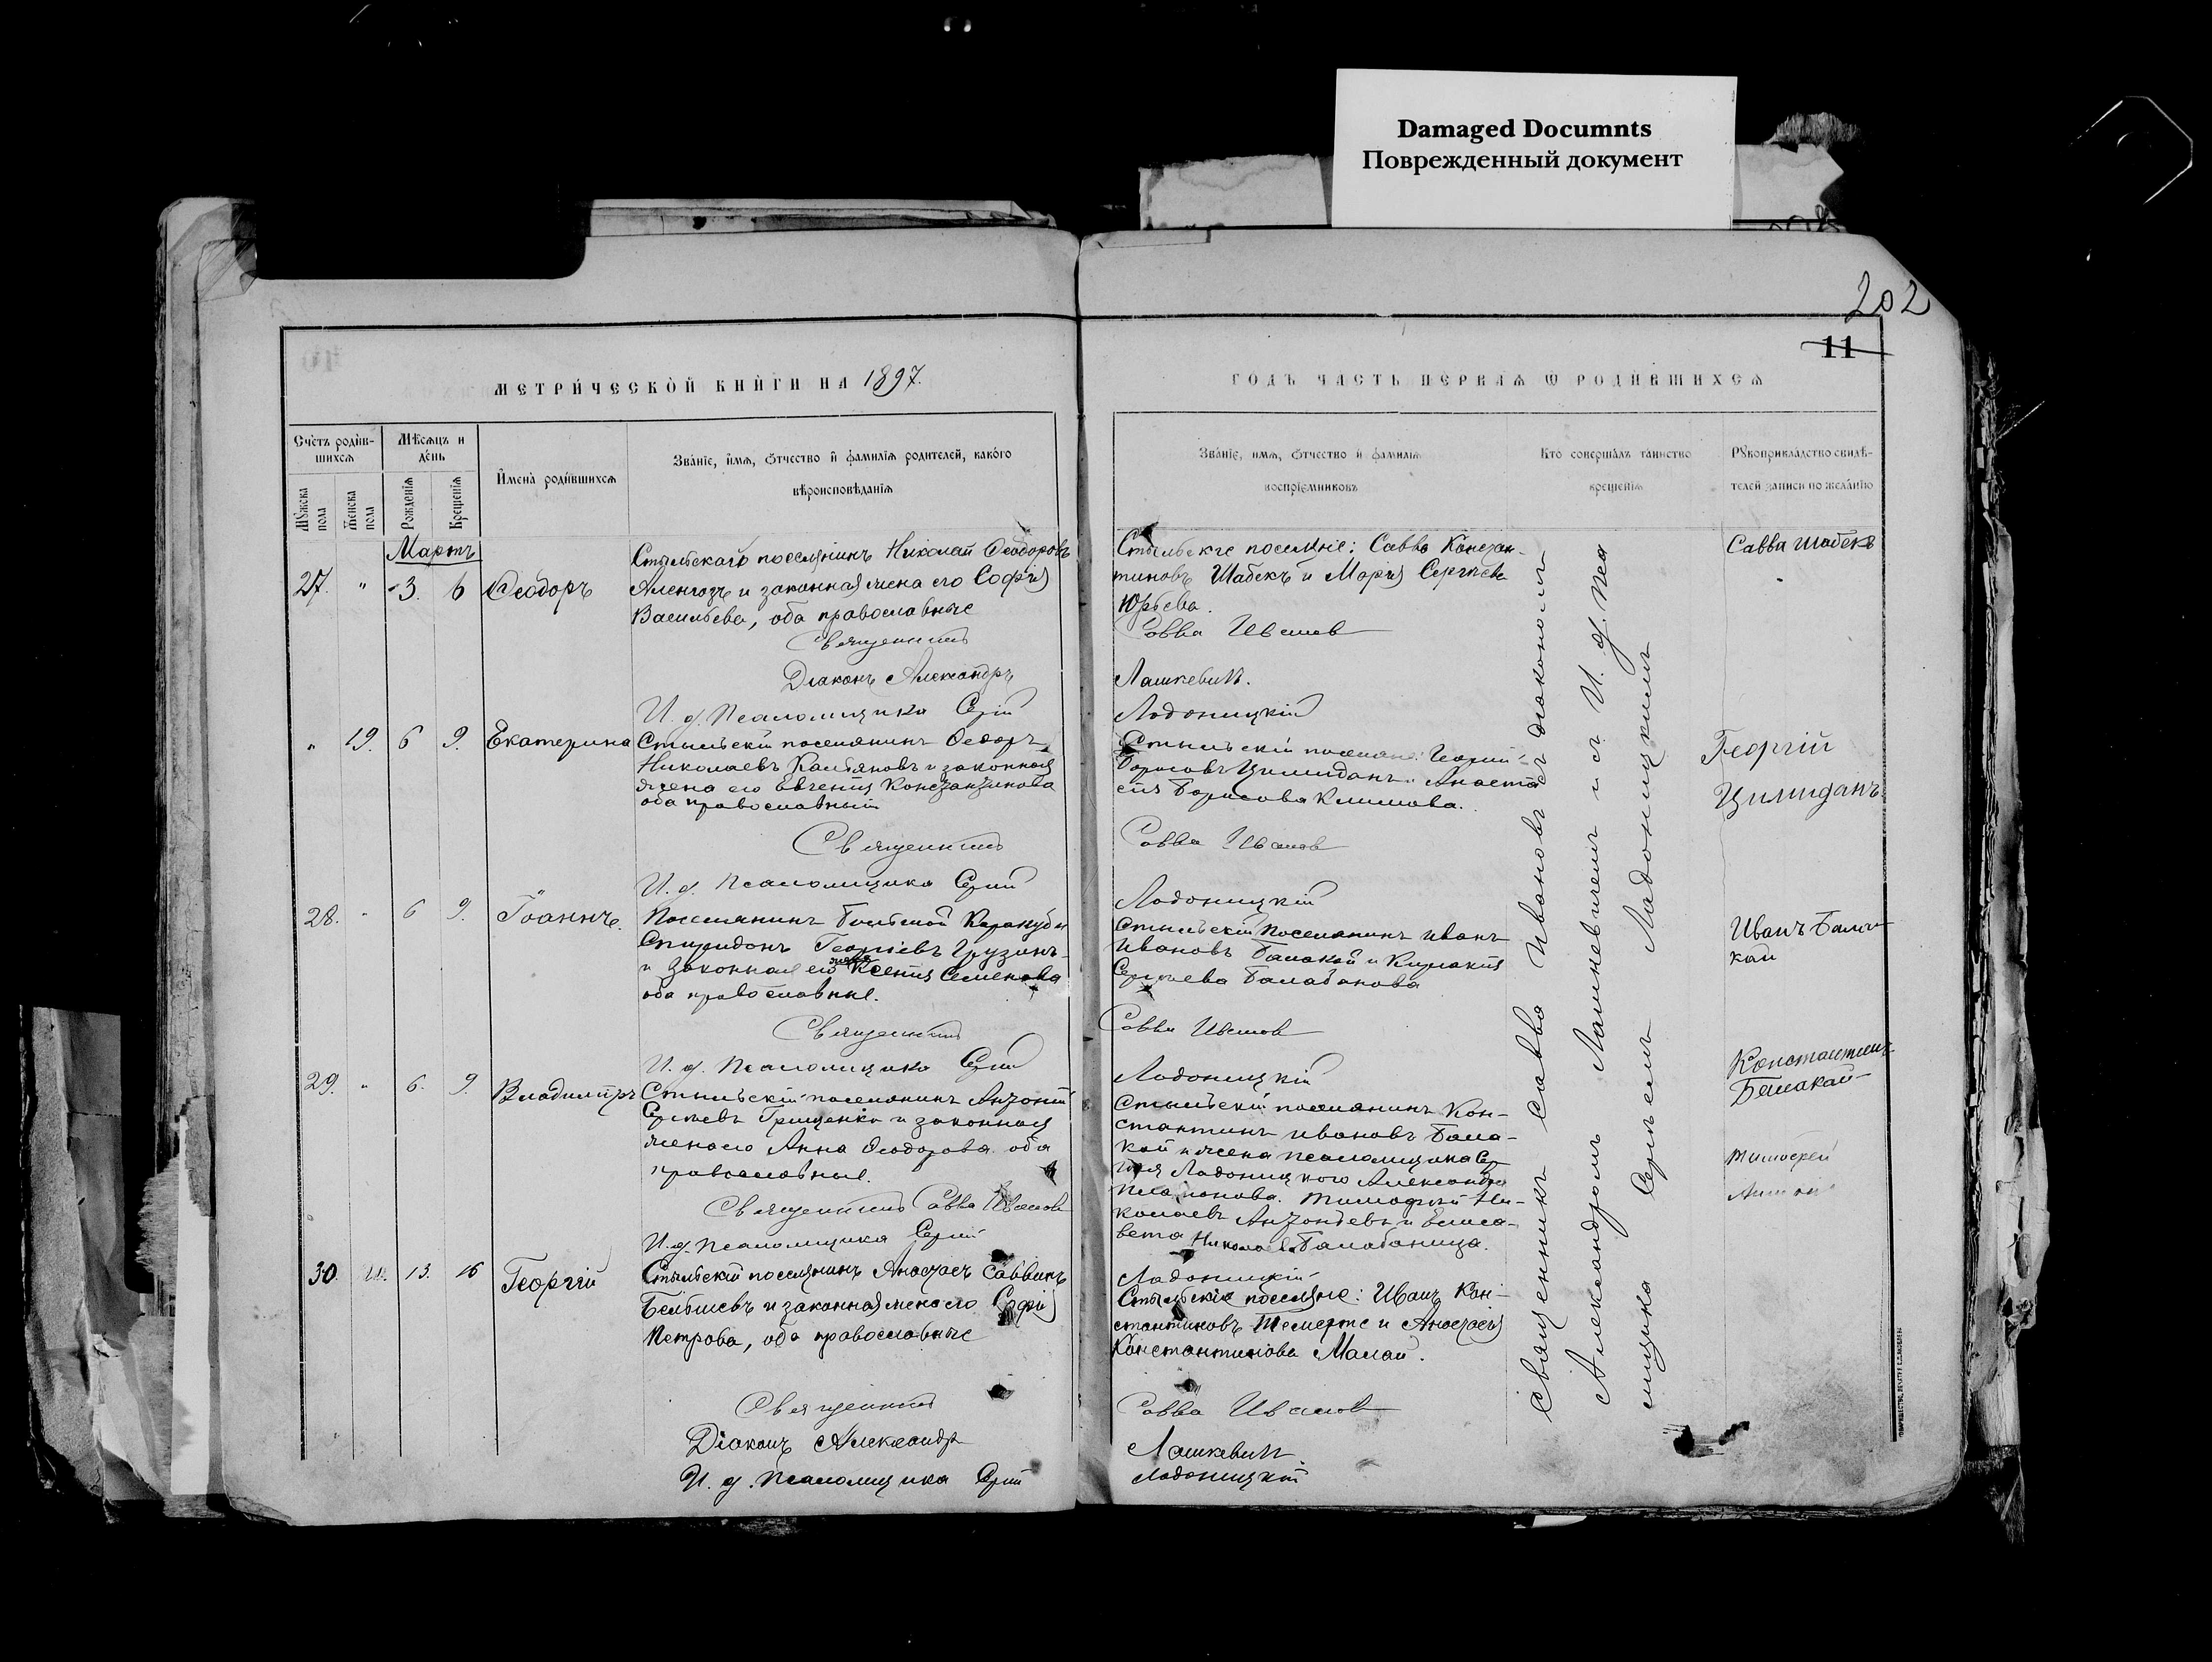 Damaged Documnts
Поврежденный документ
202
11
МЕТРИЧЕСКОЙ КНИГИ НА 1897.
ГОДЪ ЧАСТЬ ПЕРВАЯ Ѿ РОДИВШИХСЯ
Счетъ родив-
шихся
Мѣсяцъ и
день
Мужеска
пола
Женска
пола
Рожденія
Крещенія
Имена родившихся
Званіе, имя, ѿчество и фамилія родителей, какого
вѣроисповѣданія
Званіе, имя, ѿчество и фамилія
воспріемниковъ
Кто совершалъ таинство
крещенія
Рукоприкладство свидѣ-
телей записи по желанію
Мартъ
27. " 3. 6 Ѳеодоръ
Николай Ѳеодоровъ
и законная жена его Софія
Васильева, оба православные
Священникъ
Діаконъ Александръ
И. д. Псаломщика Сергій
Стыльскіе поселяне: Савва Констан-
тиновъ Шабекъ и Марія Сергѣева
Юрьева.
Савва Ивановъ
Лашкевичъ.
Ладоницкій
Савва Шабекъ
" 19. 6 9. Екатерина
Стыльскій поселянинъ Ѳеодоръ
Николаевъ Калбяновъ и законная
жена его Евгенія Константинова
оба православныи
Священникъ
И. д. Псаломщика Сергій
Стыльскій поселяне: Георгій
Борисовъ Цилиданъ и Анаста
сія Борисова
Савва Ивановъ
Ладоницкій
Георгій
Цилиданъ
28. " 6 9. Іоаннъ.
Поселянинъ Большой Каракубы
Спиридонъ Георгіевъ Грузинъ
и законная его жена Ксенія Семенова
оба православные.
Священникъ
И. д. Псаломщика Сергій
Стыльскій Поселянинъ Иванъ
Ивановъ Балакай и Киріакія
Сергѣева Балабанова
Савва Ивановъ
Ладоницкій
Иванъ Бала-
кай
29. " 6. 9. Владиміръ
Стыльскій поселянинъ Антоній
Сергѣевъ Грищенко и законная
жена его Анна Ѳеодорова оба
православные.
Священникъ Савва Ивановъ
И. д. Псаломщика Сергій
Стыльскій поселянинъ Кон-
стантинъ Ивановъ Бала-
кай и жена псаломщика Сер
гія Ладоницкого Александра
Платонова. Тимофей Ни-
колаевъ Антоньевъ и Елиса-
вета Николаева
Ладоницкій
Константинъ
Балакай
Тимофей
30. 13. 16 Георгій
Стыльскій поселянинъ Анастасъ Саввинъ
и законная жена его Софія
Петрова, оба православные
Священникъ
Діаконъ Александръ
И. д. Псаломщика Сергій
Стыльскіе поселяне: Иванъ Кон-
стантиновъ Темерте и Анастасія
Константинова Малай.
Савва Ивановъ
Лашкевичъ
Ладоницкій
Священникъ Савва Ивановъ съ діакономъ
Александромъ Лашкевичемъ и съ И. д. Пса
ломщика Сергѣемъ Ладоницкимъ